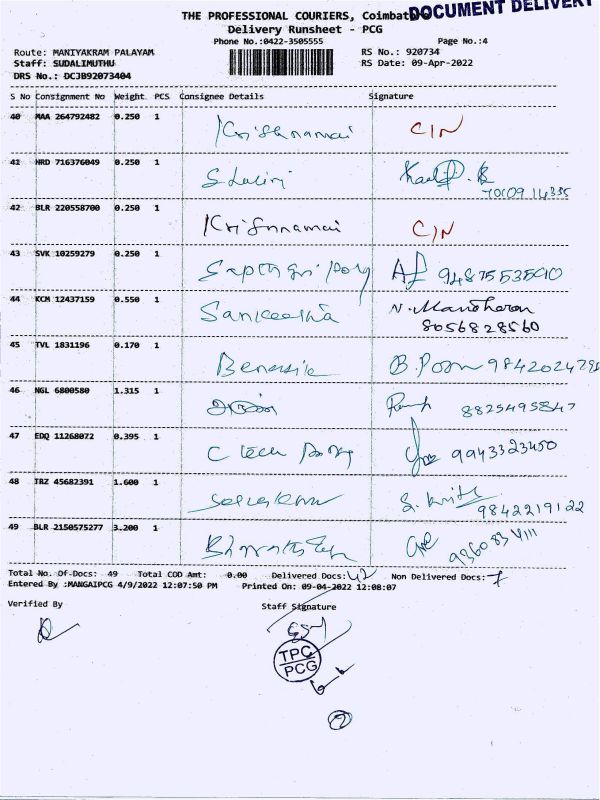 THE PROFESSIONAL COURIERS, Coimbatore
DOCUMENT DELIVERY
Delivery Runsheet - PCG
Phone No.:0422-3505555 Page No.:4
Route: MANIYAKRAM PALAYAM RS No.: 920734
Staff: SUDALIMUTHU RS Date: 09-Apr-2022
DRS No.: DCJB92073404
S No Consignment No Weight PCS Consignee Details Signature
40 MAA 264792482 0.250 1 Krishnamai C/N
41 HRD 716376049 0.250 1
42 BLR 220558700 0.250 1 Krishnamai C/N
43 SVK 10259279 0.250 1
44 KCM 12437159 0.550 1 N. Manoharan
8056828560
45 TVL 1831196 0.170 1
46 NGL 6800580 1.315 1 8825495847
47 EDQ 11268072 0.395 1 C tech 9943323450
48 IRZ 45682391 1.600 1
9842219122
49 BLR 2150575277 3.200 1
Total No. Of-Docs: 49 Total COD Amt: 0.00 Delivered Docs: 42 Non Delivered Docs: 7
Entered By :MANGAIPCG 4/9/2022 12:07:50 PM Printed On: 09-04-2022 12:08:07
Verified By Staff Signature
TPC
PCG